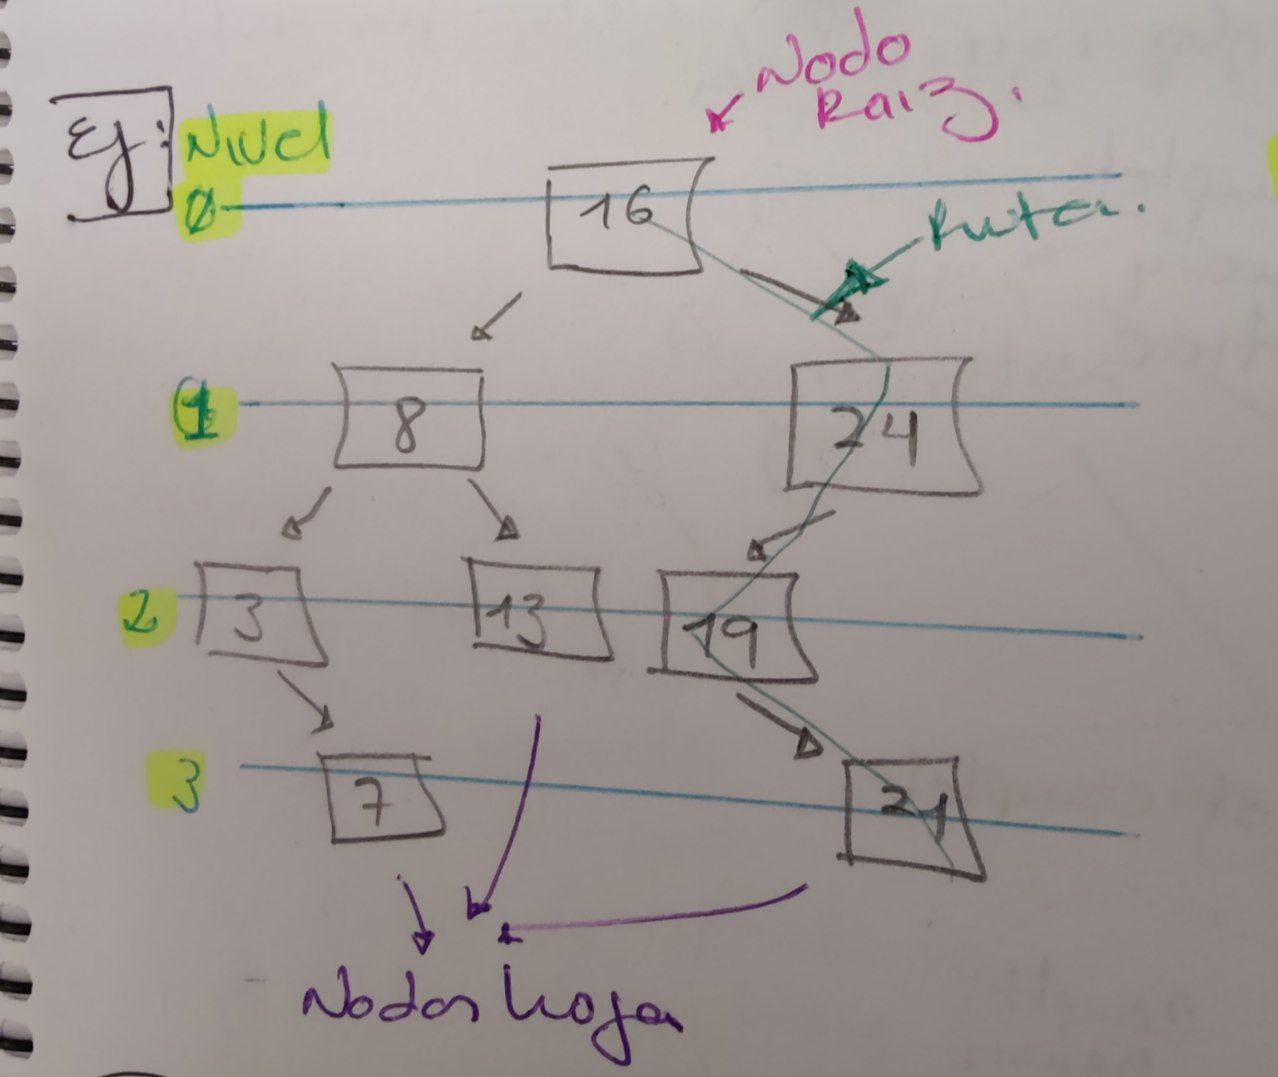 Ej:
Nivel
Nodo
Raiz.
0
16
Ruta.
1
8
24
2
3
13
19
3
7
21
Nodos hoja